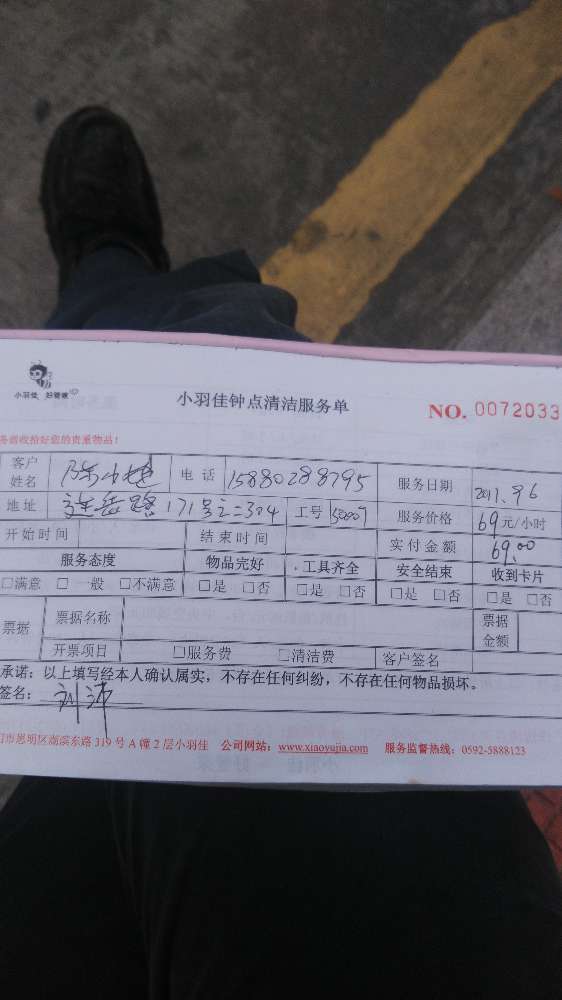 小羽佳 好管家
小羽佳钟点清洁服务单
NO. 0072033
务请收拾好您的贵重物品!
客户姓名 陈小 电话 15880288795 服务日期 2017.9.6
地址 莲岳路171号之二304 工号 服务价格 69元/小时
开始时间 结束时间 实付金额 69.00
服务态度 物品完好 工具齐全 安全结束 收到卡片
□满意 □一般 □不满意 □是 □否 □是 □否 □是 □否 □是 □否
票据 票据名称 票据金额
开票项目 □服务费 □清洁费 客户签名
承诺:以上填写经本人确认属实,不存在任何纠纷,不存在任何物品损坏。
签名:刘沛
门市思明区湖滨东路319号A幢2层小羽佳 公司网站:www.xiaoyujia.com 服务监督热线:0592-5888123